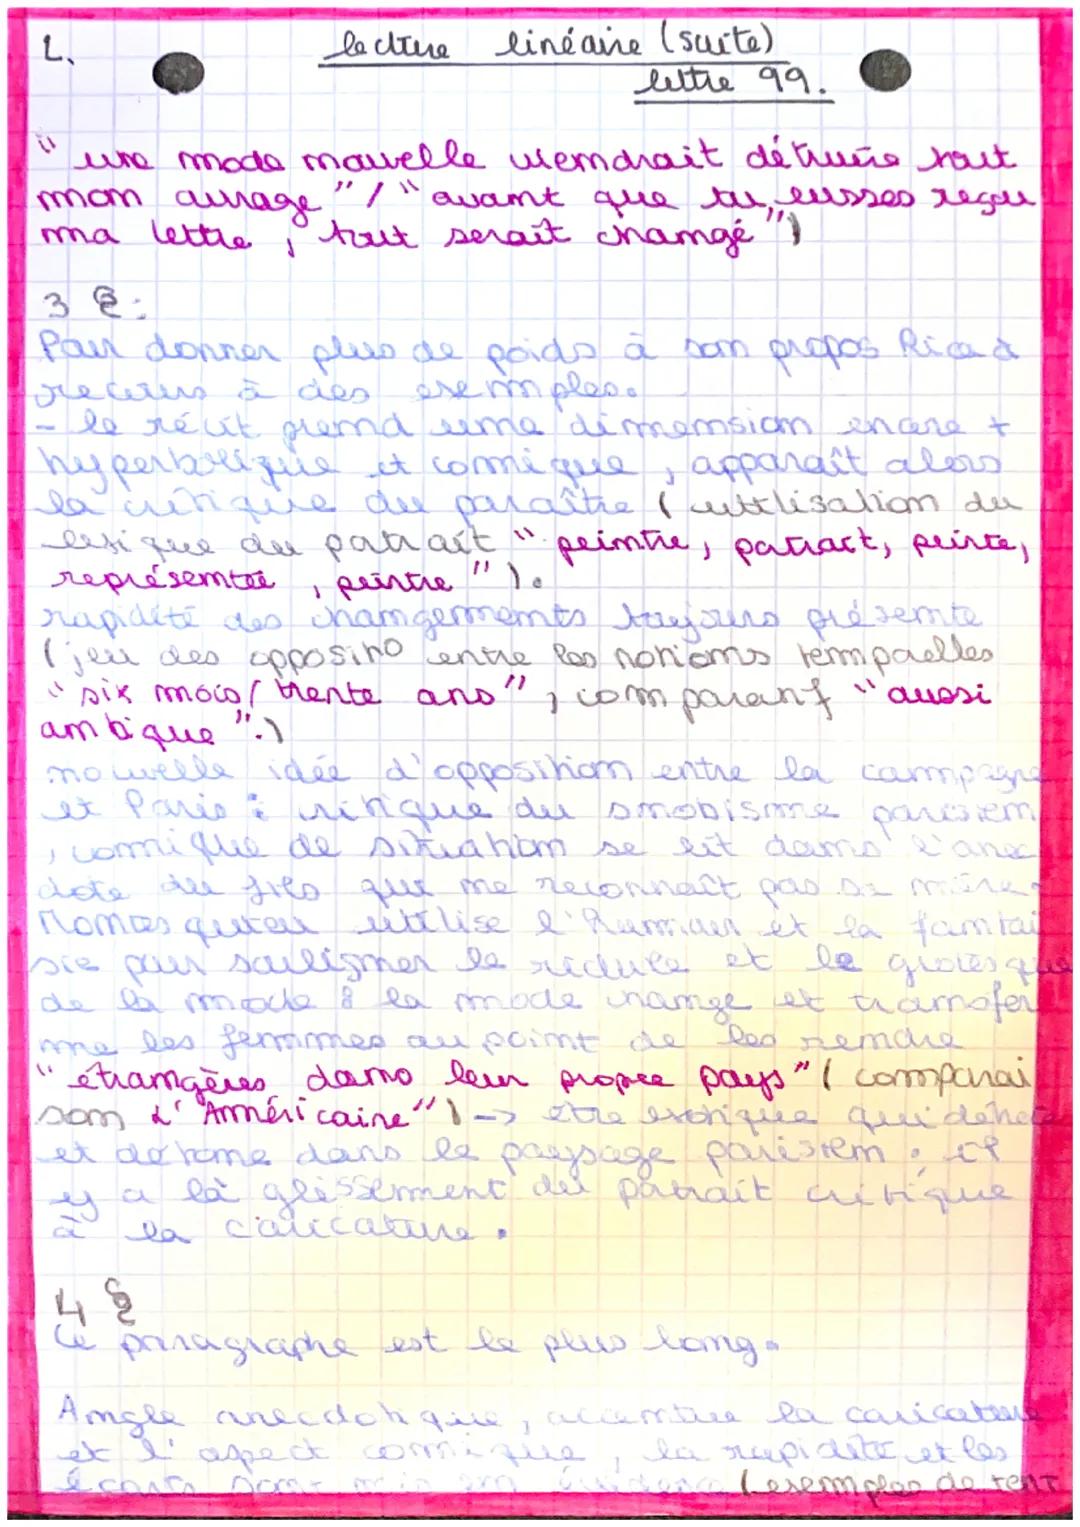 2.
lecture linéaire (suite)
lettre 99.
"une mode nouvelle viendrait détruire tout
mon ouvrage" / "avant que tu eusses reçu
ma lettre, tout serait changé")
3 §:
Pour donner plus de poids à son propos Rica a
recours à des exemples.
- le récit prend une dimension encore +
hyperbolique et comique, apparaît alors
la critique du paraître (utilisation du
lexique du portrait "peintre, portrait, peinte,
représentée, peintre").
rapidité des changements toujours présente
(jeu des oppositno entre les notions temporelles
"six mois/trente ans", comparant "aussi
antique".)
nouvelle idée d'opposition entre la campagne
et Paris : critique du snobisme parisien
, comique de situation se lit dans l'anec
dote du fils qui ne reconnaît pas sa mère.
Montesquieu utilise l'humour et la fantai
sie pour souligner le ridicule et le grotesque
de la mode : la mode change et transfor
me les femmes au point de les rendre
"étrangères dans leur propre pays" (comparai
son à l'"Américaine") -> être exotique qui détone
et détonne dans le paysage parisien : il
y a là glissement du portrait critique
à la caricature.
4 §
Ce paragraphe est le plus long.
Angle anecdotique, accentue la caricature
et l'aspect comique, la rapidité et les
écarts sont mis en évidence (exemples de tent